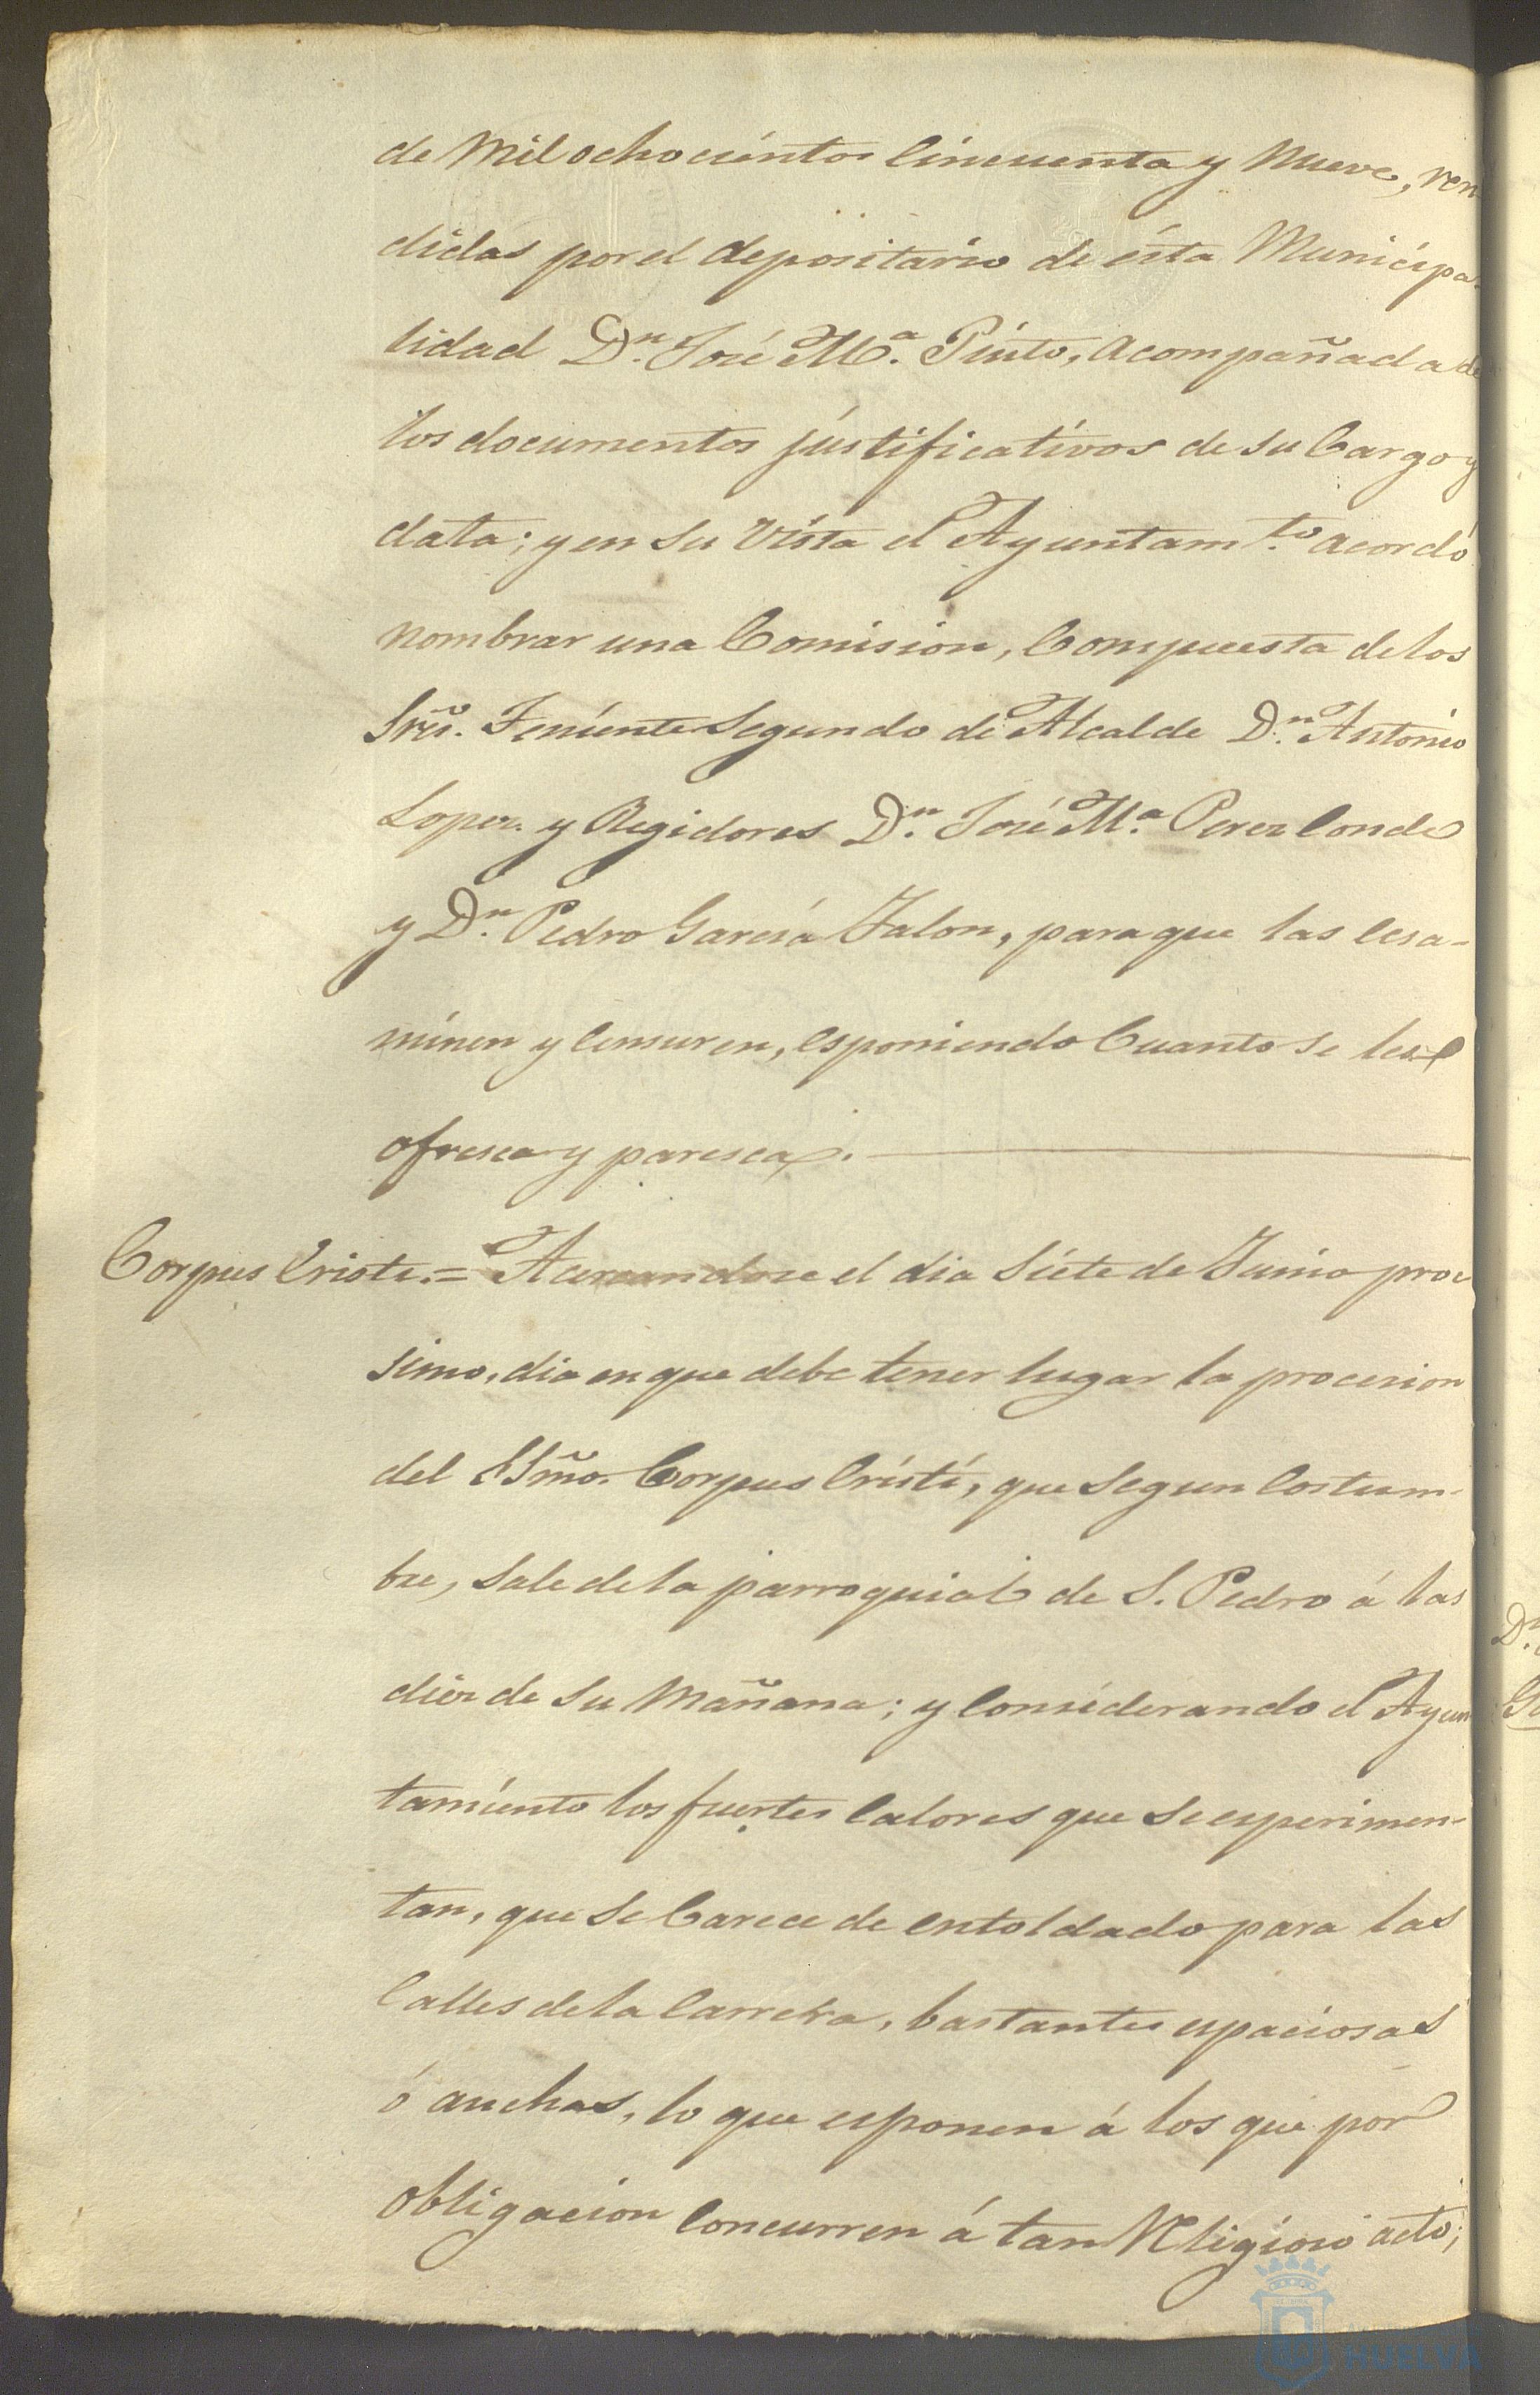 de Mil ochocientos Cincuenta y Nueve, ren
didas por el depositario de ésta Municipa
lidad D.n José M.a Pinto, acompañada de
los documentos justificativos de su Cargo y
data; y en su Vista el Ayuntam.to acordó
nombrar una Comision, Compuesta de los
Sres. Teniente Segundo de Alcalde D.n Antonio
Lopez y Regidores D.n José M.a Perez Conde
y D.n Pedro Garcia Jalon, para que las ecsa-
minen y Censuren, esponiendo Cuanto se les
ofresca y paresca.
Corpus Cristi.= Acercandose el dia Siete de Junio proc
simo, dia en que debe tener lugar la procesion
del SSmo. Corpus Cristi, que Segun Costum-
bre, Sale de la parroquial de S. Pedro á las
diez de Su Mañana; y Considerando el Ayun
tamiento los fuertes Calores que Se esperimen-
tan, que Se Carece de entoldado para las
Calles de la Carrera, bastantes espaciosas
ó anchas, lo que esponen á los que por
obligacion Concurren á tan Religioso acto;
D.n
HUELVA